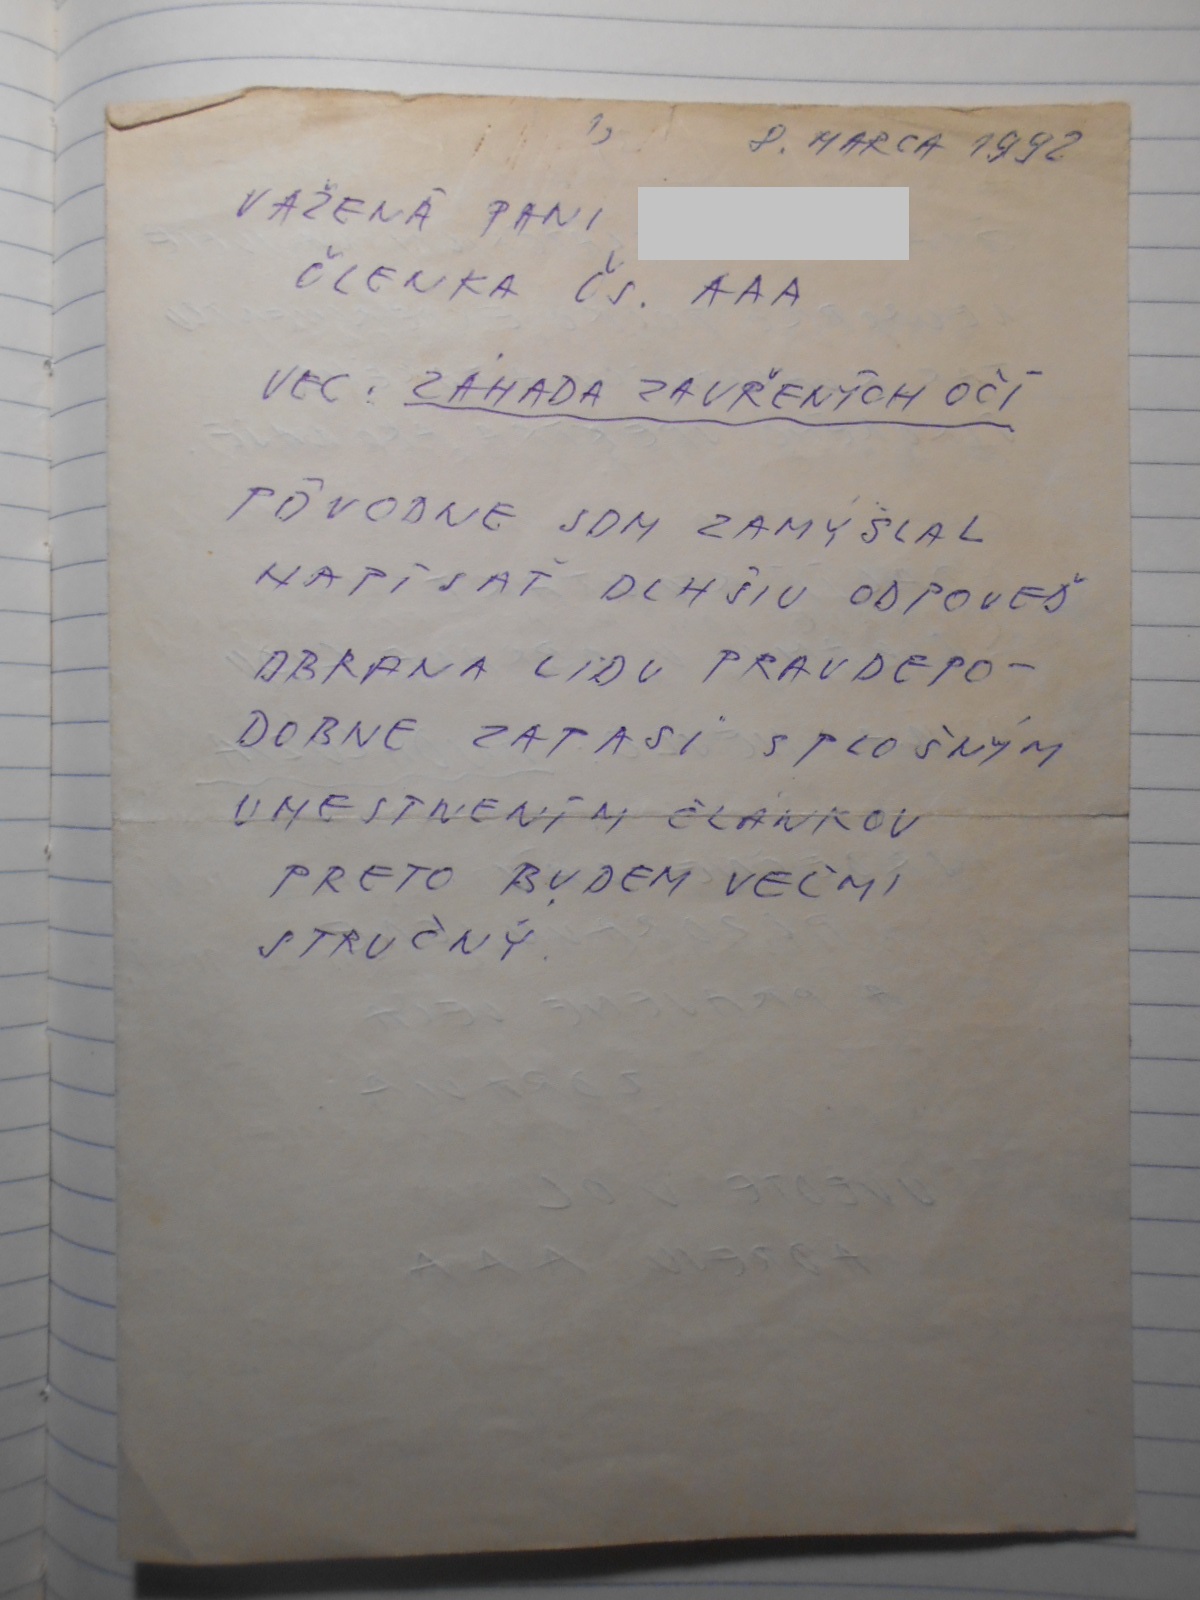 1, 8. MARCA 1992
VAŽENÁ PANI
ČLENKA ČS. AAA
VEC: ZÁHADA ZAVŘENÝCH OČÍ
PÔVODNE SOM ZAMÝŠLAL
NAPÍSAŤ DLHŠIU ODPOVEĎ
OBRANA LIDU PRAVDEPO-
DOBNE ZAPASÍ S PLOŠNÝM
UMESTNENÍM ČLÁNKOV
PRETO BUDEM VEĽMI
STRUČNÝ.